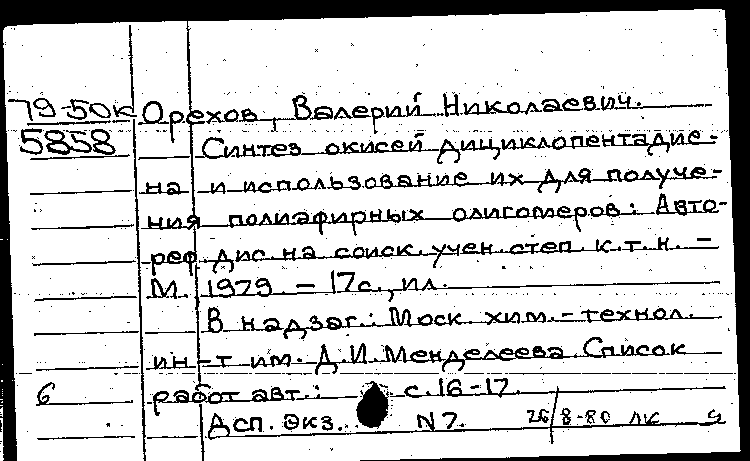 79-50к Орехов, Валерий Николаевич.
5858 Синтез окисей дициклопентадие-
на и использование их для получе-
ния полиэфирных олигомеров: Авто-
реф. дис. на соиск. учен. степ. к.т.н. -
М. 1979. - 17с., ил.
В надзаг.: Моск. хим.-технол.
ин-т им. Д.И.Менделеева. Список
6 работ авт.: с.16-17.
Асп. Экз. N7. 26/8-80 лк